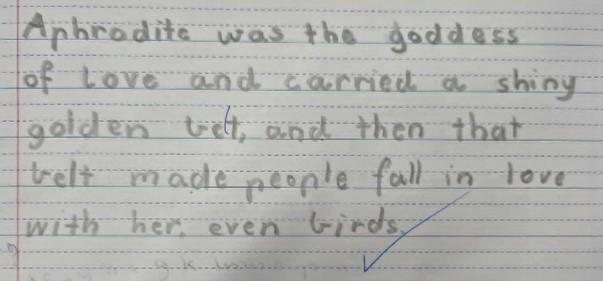 Aphrodite was the goddess
of love and carried a shiny
golden belt, and then that
belt made people fall in love
with her, even birds.